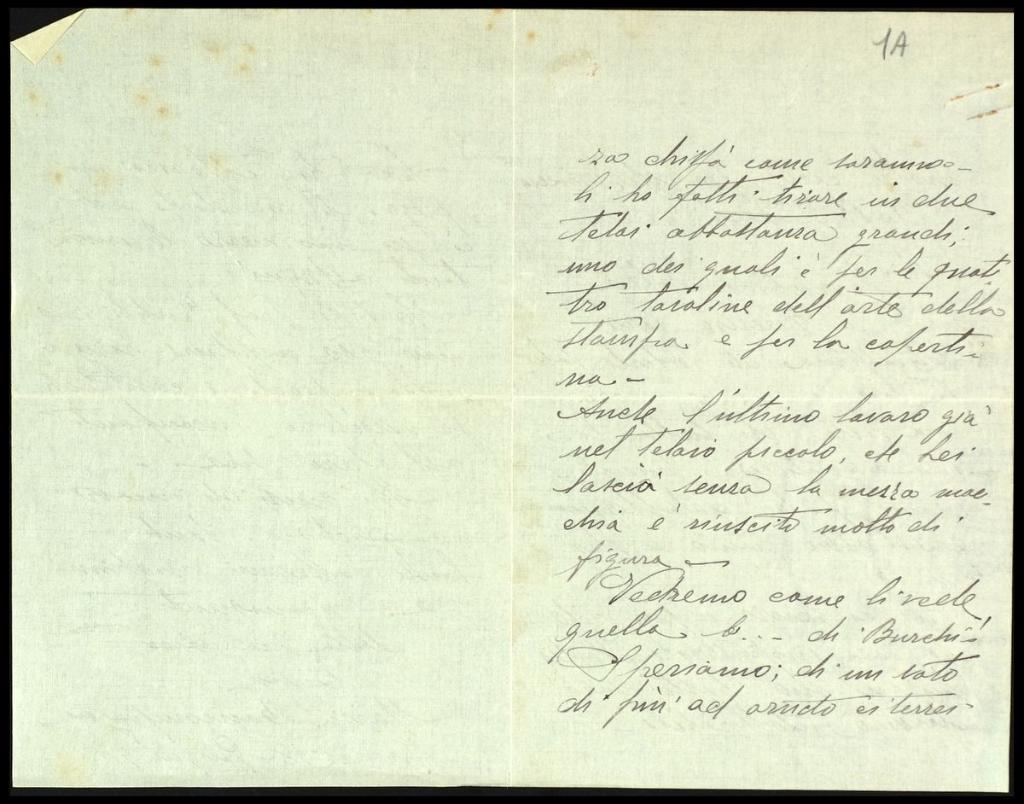 1A
za chissà come saranno–
li ho fatti tirare in due
telai abbastanza grandi;
uno dei quali è per le quat
tro tavoline dell'arte della
stampa e per la coperti-
na–
Anche l'ultimo lavoro già
nel telaio piccolo, che Lei
lasciò senza la mezza mac-
chia è riuscito molto di
figura–
Vedremo come li vede
quella b... di Burchi!
Speriamo; di un lato
di più ad